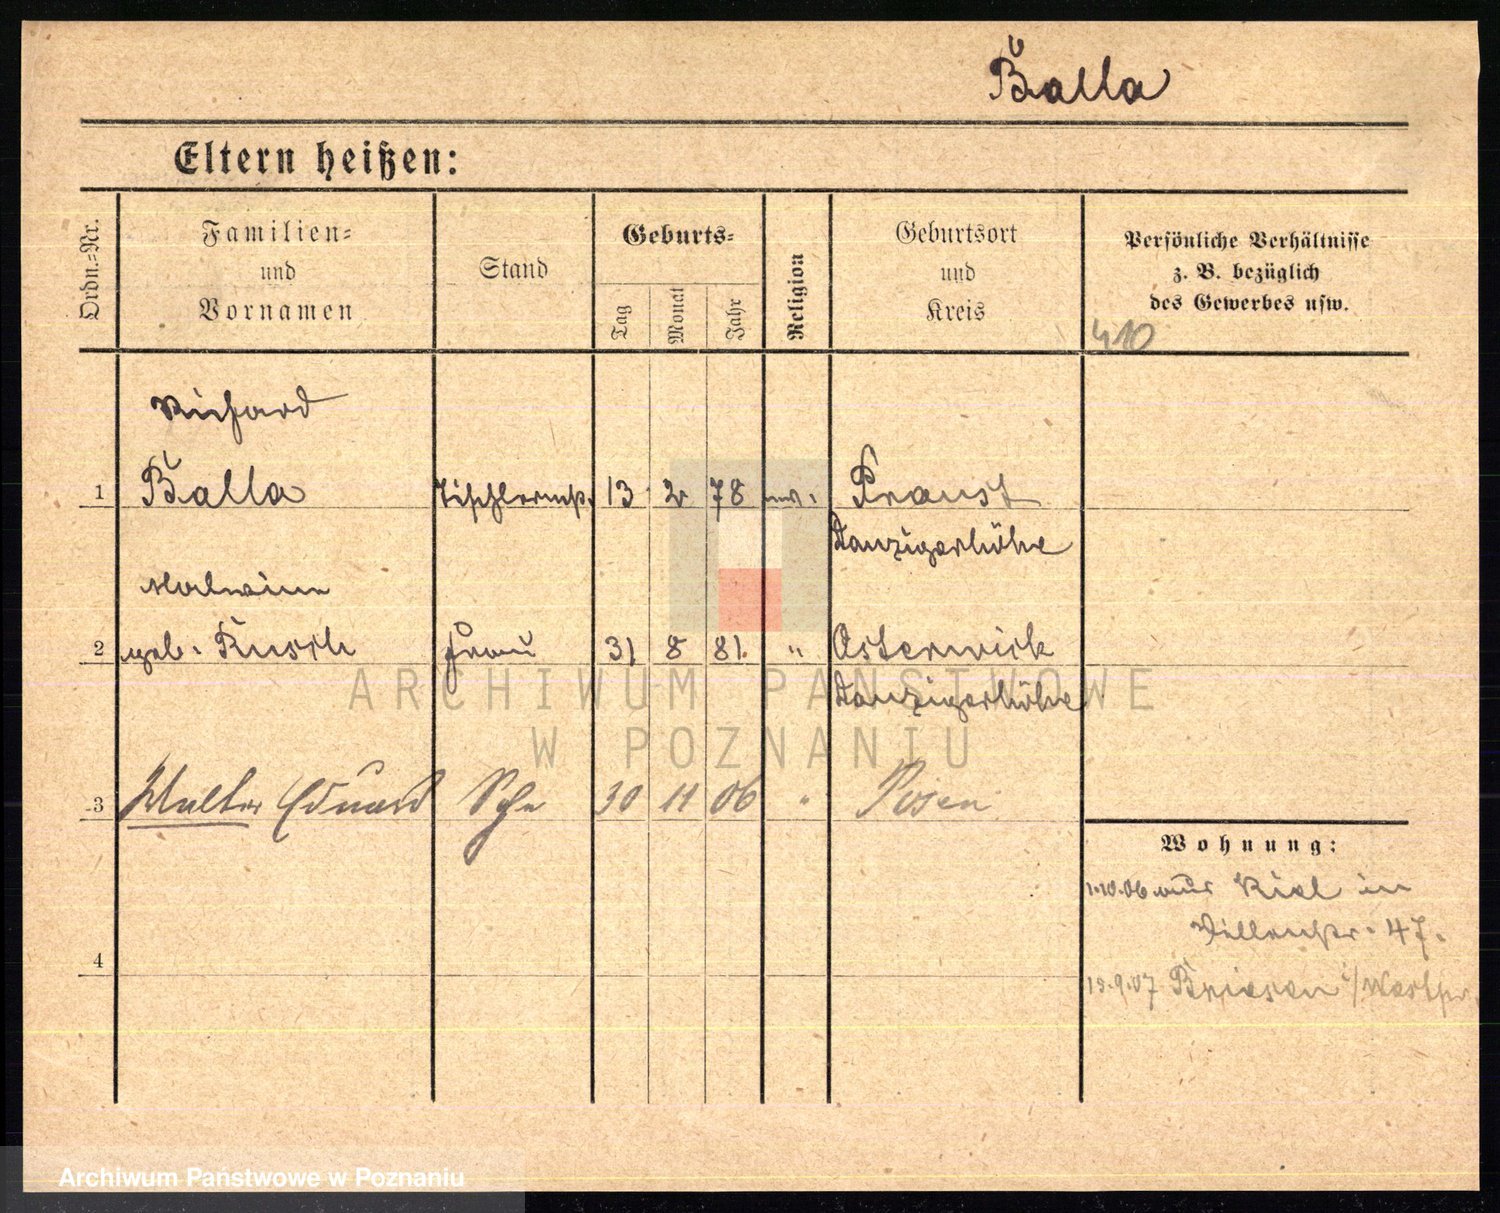 Balla
Eltern heißen:
Ordn.=Nr.
Familien=
und
Vornamen
Stand
Geburts=
Tag
Monat
Jahr
Religion
Geburtsort
und
Kreis
Persönliche Verhältnisse
z. B. bezüglich
des Gewerbes usw.
410
Richard
1 Balla 13 2 78 Praust
Danzigerhöhe
Malwine
2 geb. Kusch Frau 31 8 81. " Osterwick
Danzigerhöhe
3 Walter Eduard Sohn 30 11 06 " Posen
Wohnung:
1.10.06 aus Kiel in
47.
4
15.9.07 Briesen i/Westpr.
ARCHIWUM PAŃSTWOWE
W POZNANIU
Archiwum Państwowe w Poznaniu